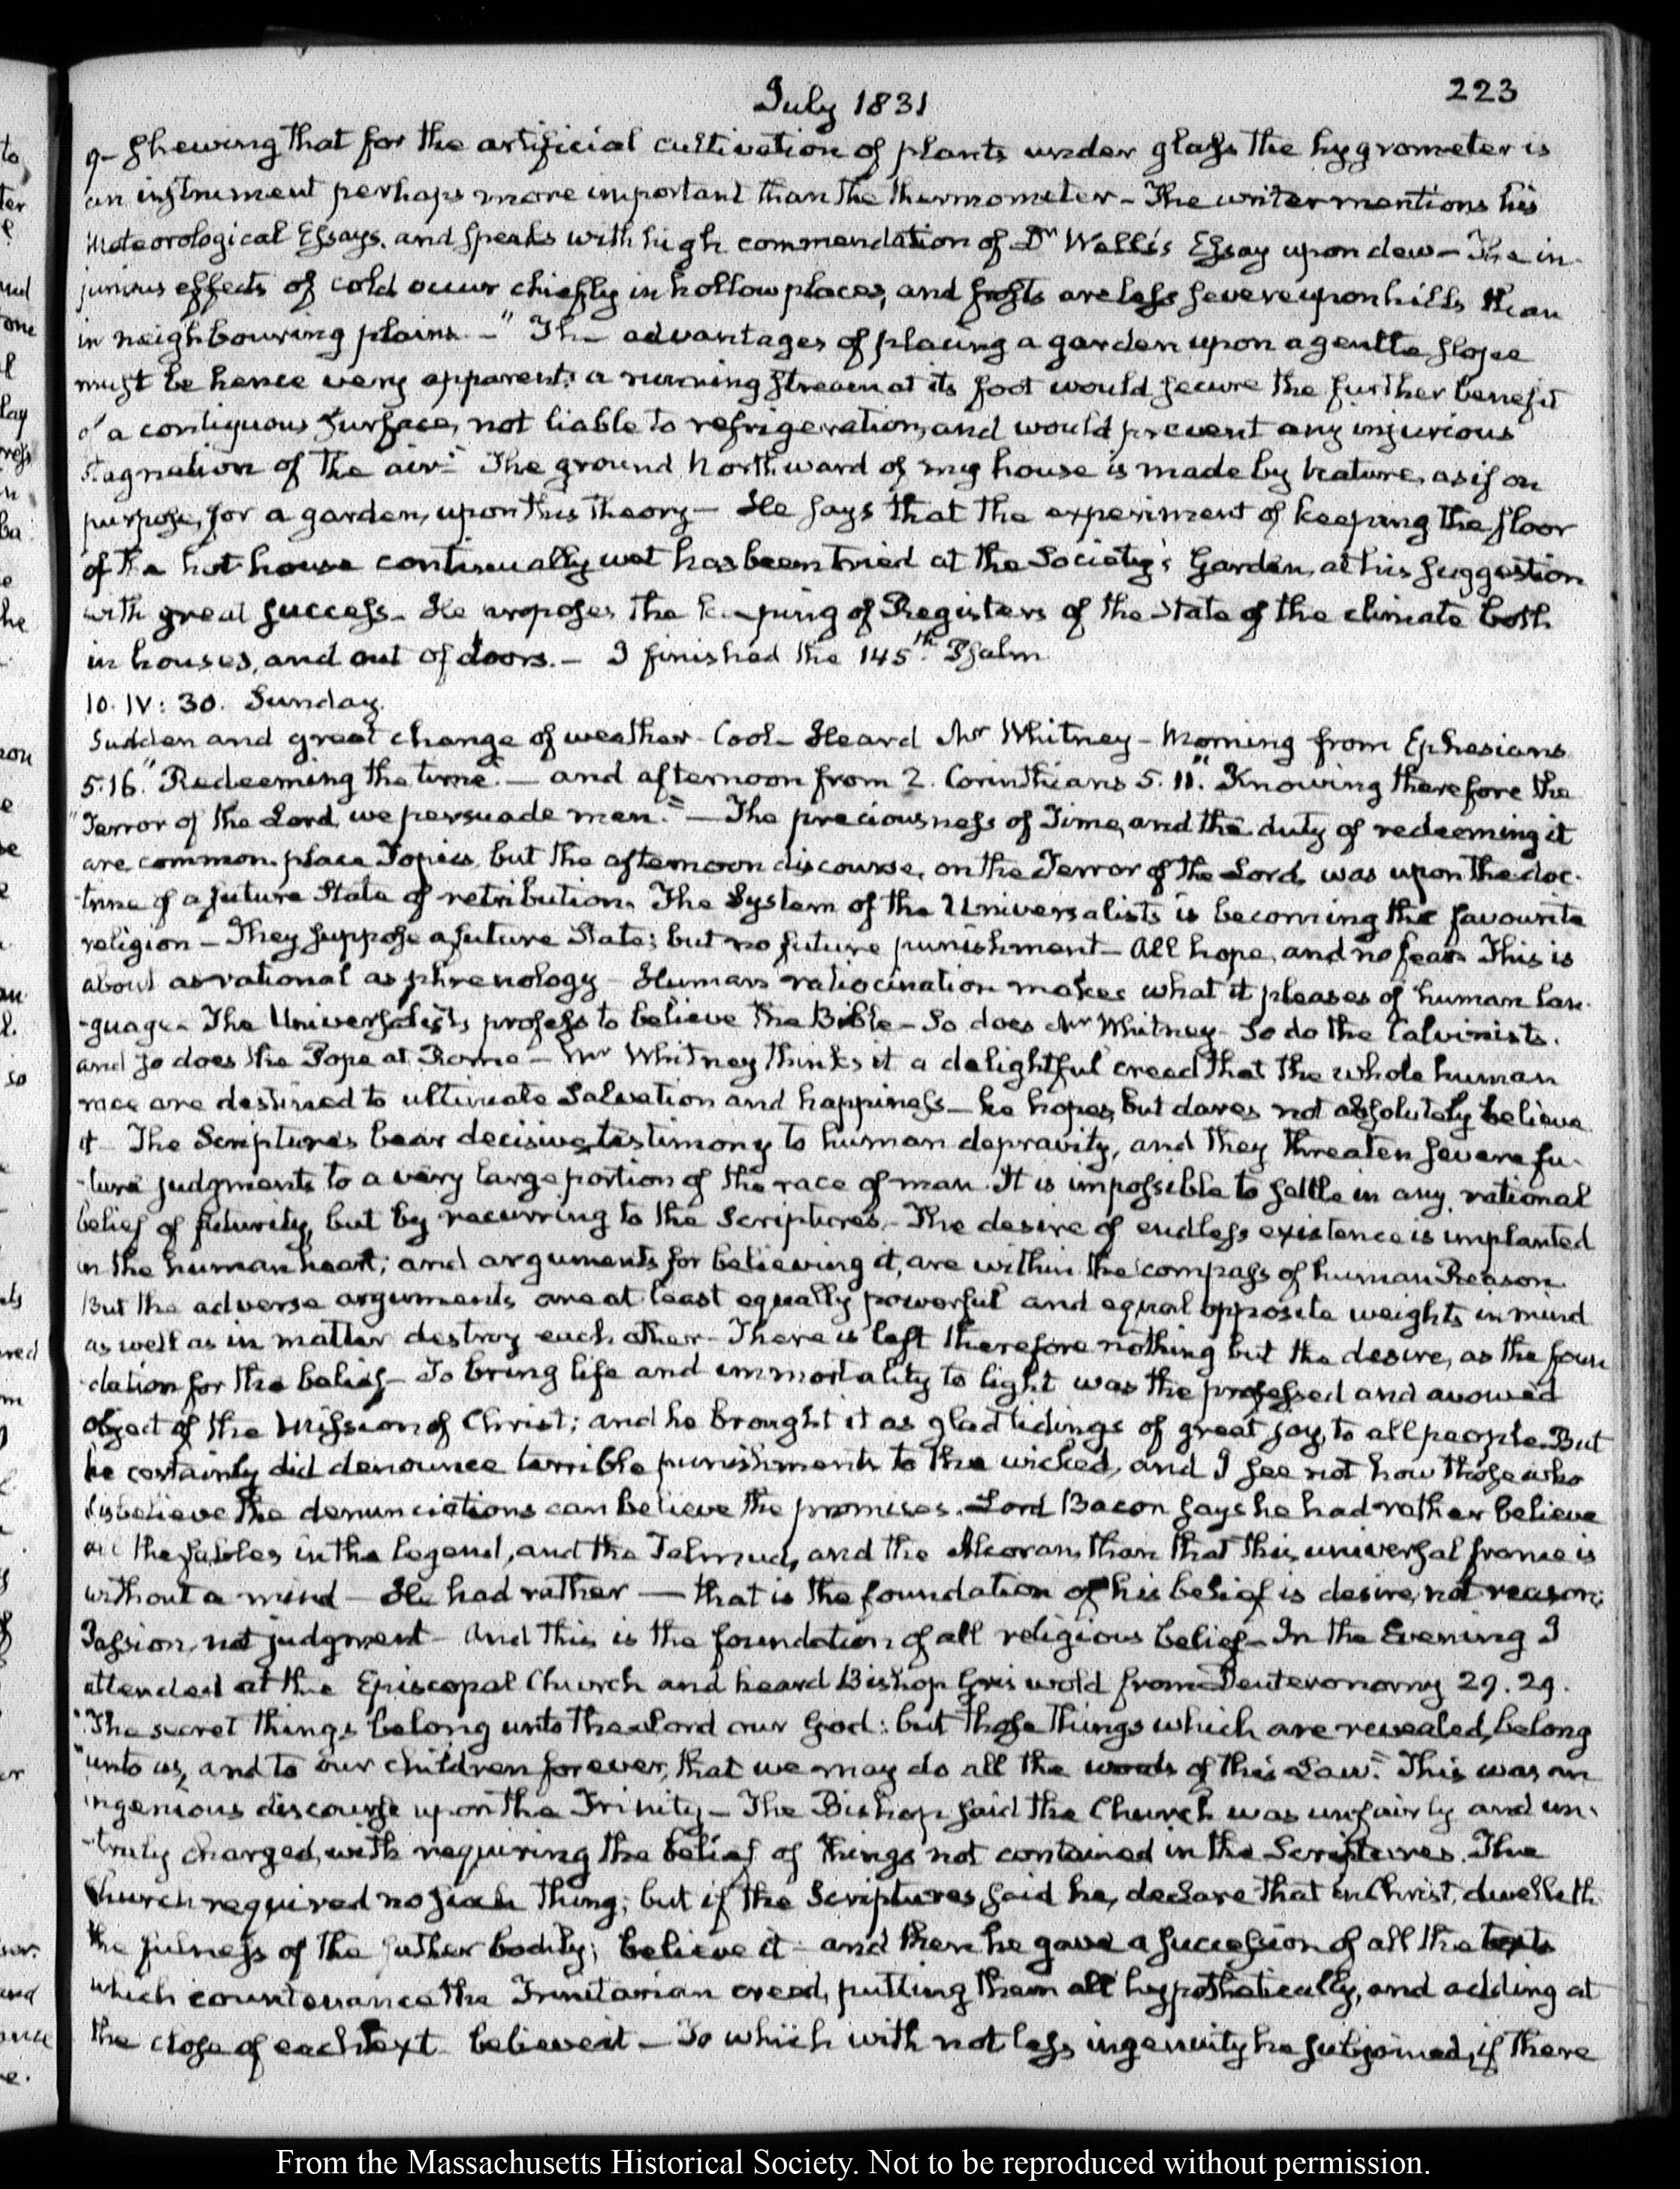 July 1831
223
9— shewing that for the artificial cultivation of plants under glass the hygrometer is
an instrument perhaps more important than the thermometer — The writer mentions his
Meteorological Essays, and speaks with high commendation of Dr Wells's Essay upon dew — The in-
jurious effects of cold occur chiefly in hollow places, and frosts are less severe upon hills than
in neighbouring plains. — " The advantages of placing a garden upon a gentle slope
must be hence very apparent: a running stream at its foot would secure the further benefit
of a contiguous surface, not liable to refrigeration, and would prevent any injurious
stagnation of the air." The ground Northward of my house is made by Nature, as if on
purpose, for a garden, upon this theory — He says that the experiment of keeping the floor
of the hot house continually wet has been tried at the Society's Garden, at his suggestion
with great success — He proposes the keeping of Registers of the State of the climate both
in houses, and out of doors. — I finished the 145th. Psalm
10. IV: 30. Sunday.
Sudden and great change of weather — Cool — Heard Mr Whitney — Morning from Ephesians
5.16. "Redeeming the time." — and afternoon from 2. Corinthians 5. 11. "Knowing therefore the
"Terror of the Lord, we persuade men." — The preciousness of Time, and the duty of redeeming it
are common place Topics, but the afternoon discourse, on the Terror of the Lord, was upon the doc-
-trine of a future State of retribution. The System of the Universalists is becoming the favourite
religion — They suppose a future State; but no future punishment — All hope, and no fear. This is
about as rational as phrenology — Human ratiocination makes what it pleases of human lan-
-guage — The Universalists profess to believe the Bible — So does Mr Whitney — So do the Calvinists.
and so does the Pope at Rome — Mr Whitney thinks it a delightful creed that the whole human
race are destined to ultimate Salvation and happiness — he hopes, but dares not absolutely believe
it — The Scriptures bear decisive testimony to human depravity, and they threaten severe fu-
-ture judgments to a very large portion of the race of man. It is impossible to settle in any rational
belief of futurity, but by recurring to the Scriptures. — The desire of endless existence is implanted
in the human heart; and arguments for believing it, are within the compass of human Reason.
But the adverse arguments are at least equally powerful and equal opposite weights in mind
as well as in matter destroy each other — There is left therefore nothing but the desire, as the foun
-dation for the belief — To bring life and immortality to light was the professed and avowed
object of the Mission of Christ; and he brought it as glad tidings of great joy, to all people. But
he certainly did denounce terrible punishments to the wicked, and I see not how those who
disbelieve the denunciations can believe the promises. Lord Bacon says he had rather believe
all the fables in the legend, and the Talmud, and the Alcoran, than that this universal frame is
without a mind — He had rather — that is the foundation of his belief is desire, not reason;
Passion, not judgment — And this is the foundation of all religious belief — In the Evening I
attended at the Episcopal Church and heard Bishop Griswold from Deuteronomy 29. 29.
"The secret things belong unto the Lord our God: but those things which are revealed, belong
"unto us, and to our children forever, that we may do all the words of this Law." This was an
ingenious discourse upon the Trinity — The Bishop said the Church was unfairly and un-
-truly charged, with requiring the belief of things not contained in the Scriptures. The
Church required no such thing; but if the Scriptures, said he, declare that in Christ, dwelleth
the fulness of the father bodily; believe it — and then he gave a succession of all the texts
which countenance the Trinitarian creed, putting them all hypothetically, and adding at
the close of each text believe it — To which with not less ingenuity he subjoined, if there
From the Massachusetts Historical Society. Not to be reproduced without permission.